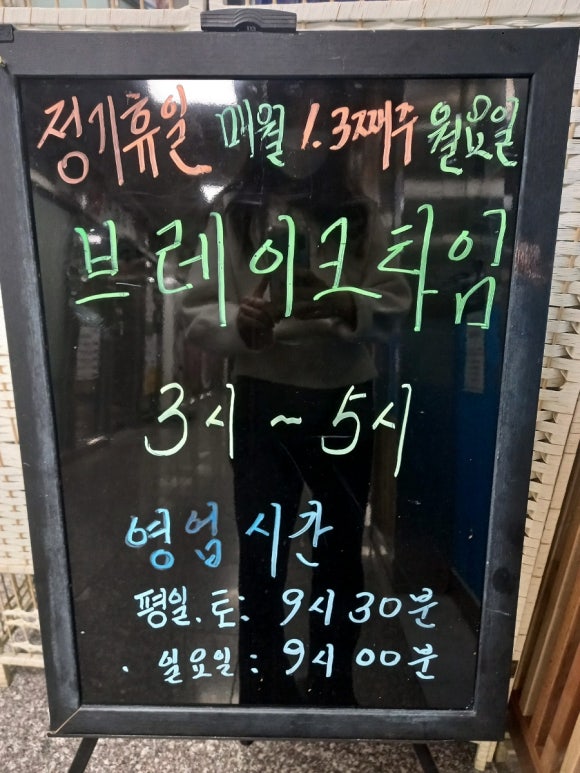 정기휴일 매월 1.3째주 월요일
브레이크타임
3시 ~ 5시
영업시간
평일.토: 9시 30분
. 일요일: 9시 00분